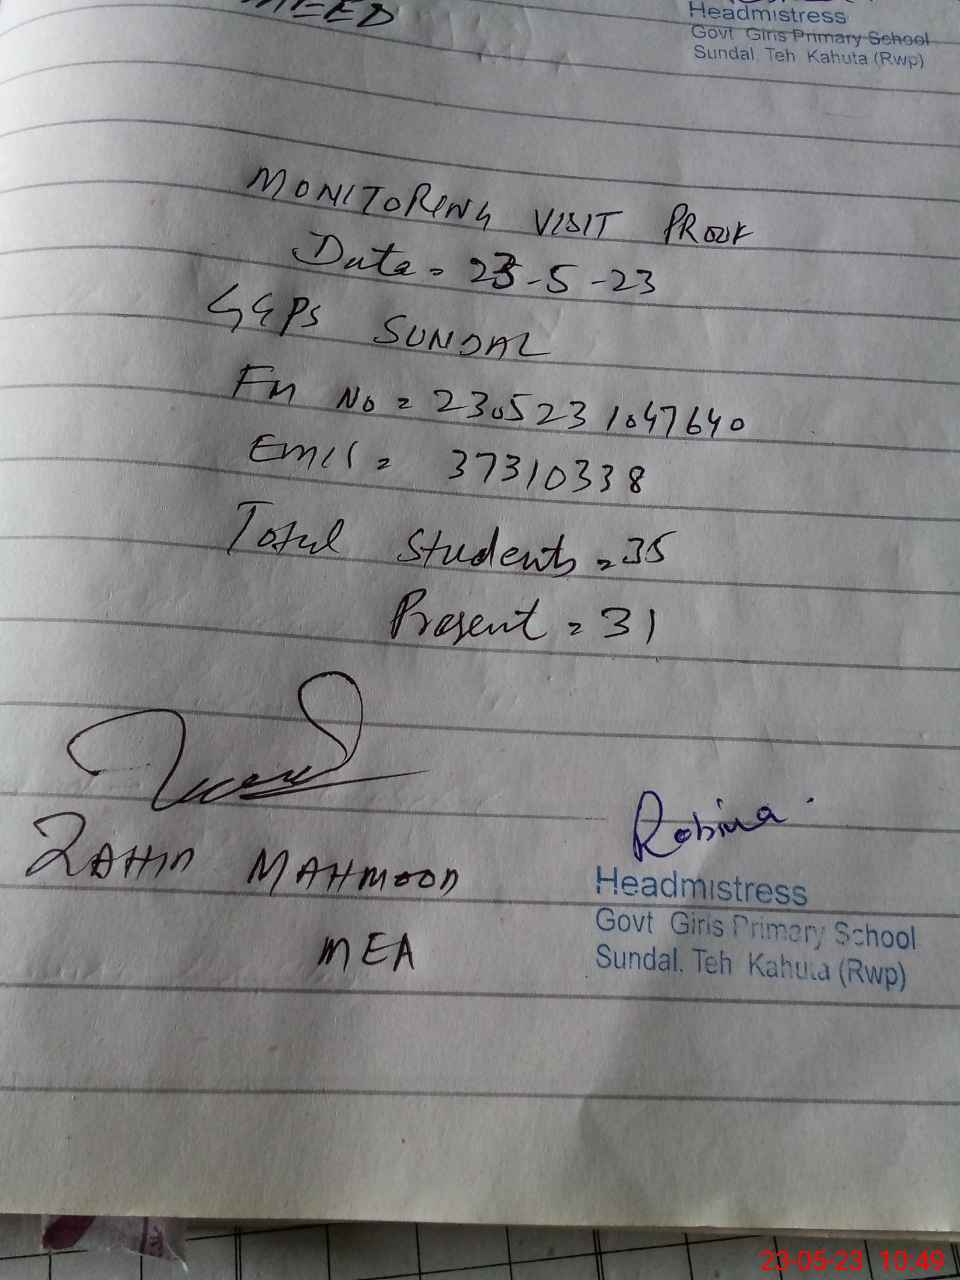 Headmistress
Govt Girls Primary School
Sundal. Teh Kahuta (Rwp)
MONITORING VISIT PROOF
Date = 23-5-23
GGPS SUNDAL
Fm No = 230523 1047640
EMIS = 37310338
Total Students = 35
Present = 31
ZAHID MAHMOOD
MEA
Robina
Headmistress
Govt Girls Primary School
Sundal. Teh Kahuta (Rwp)
23-05-23 10:49